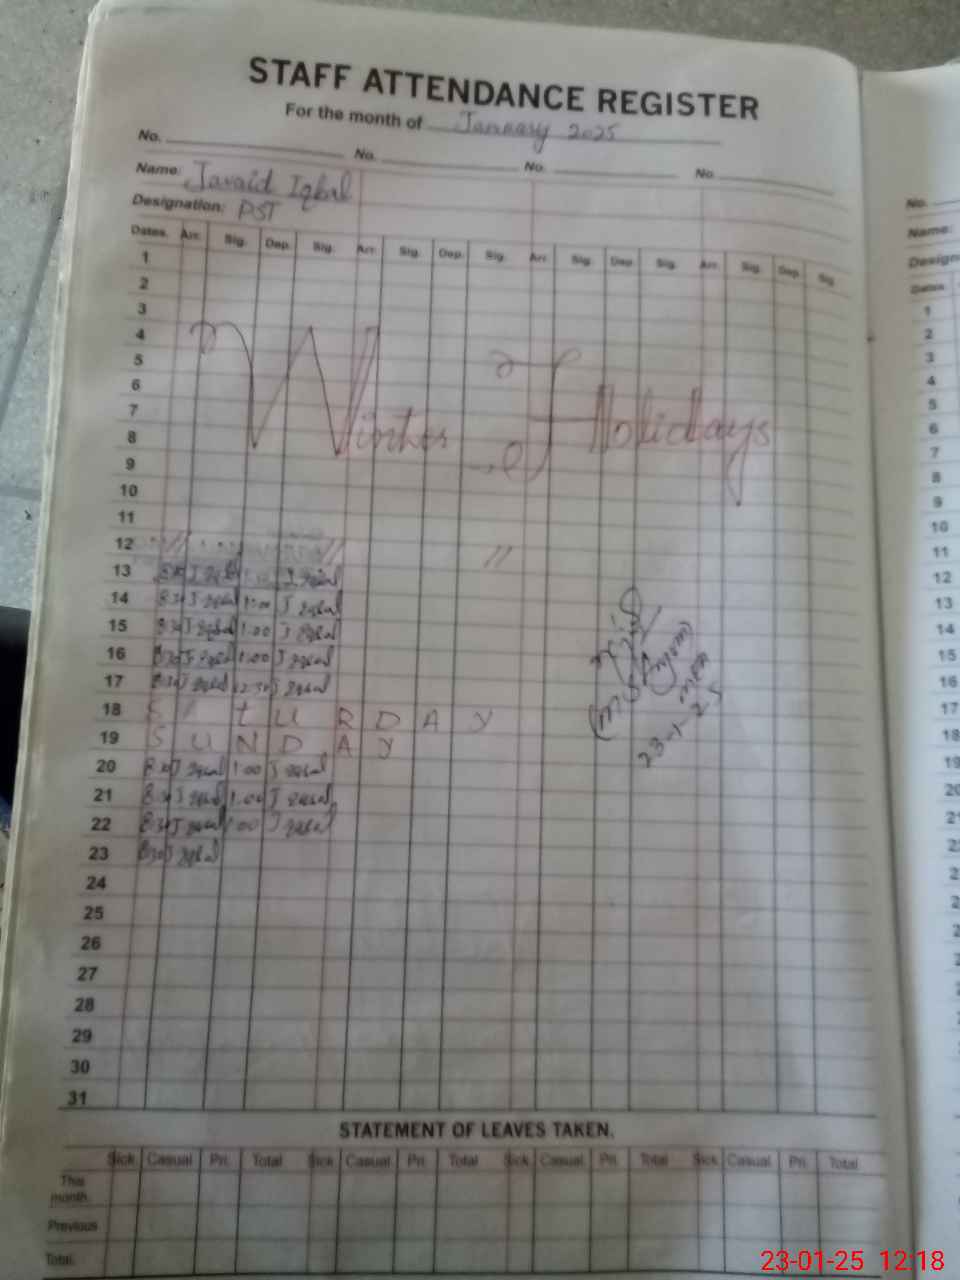 STAFF ATTENDANCE REGISTER
For the month of January 2025
No. No. No. No.
Name: Javaid Iqbal
Designation: PST
Dates. Arr. Sig. Dep. Sig. Arr. Sig. Dep. Sig. Arr. Sig. Dep. Sig. Arr. Sig. Dep. Sig.
1
2
3
4
5
6
7
8
Winter Holidays
9
10
11
12 // // //
13 J Iqbal
14 8:30 J Iqbal 1:00 J Iqbal
15 8:30 J Iqbal 1:00 J Iqbal
16 8:30 J Iqbal 1:00 J Iqbal
17 8:30 J Iqbal 12:30 J Iqbal
18 S / t U R D A Y
19 S U N D A Y
20 8:30 J Iqbal 1:00 J Iqbal
21 8:30 J Iqbal 1:00 J Iqbal
22 8:30 J Iqbal 1:00 J Iqbal
23 8:30 J Iqbal
24
25
26
27
28
29
30
31
23-1-25
STATEMENT OF LEAVES TAKEN.
Sick Casual Pri. Total Sick Casual Pri. Total Sick. Casual Pri. Total Sick Casual Pri. Total
This month.
Previous
Total.
No.
Name:
Dates.
1
2
3
4
5
6
7
8
9
10
11
12
13
14
15
16
17
18
19
20
23-01-25 12:18